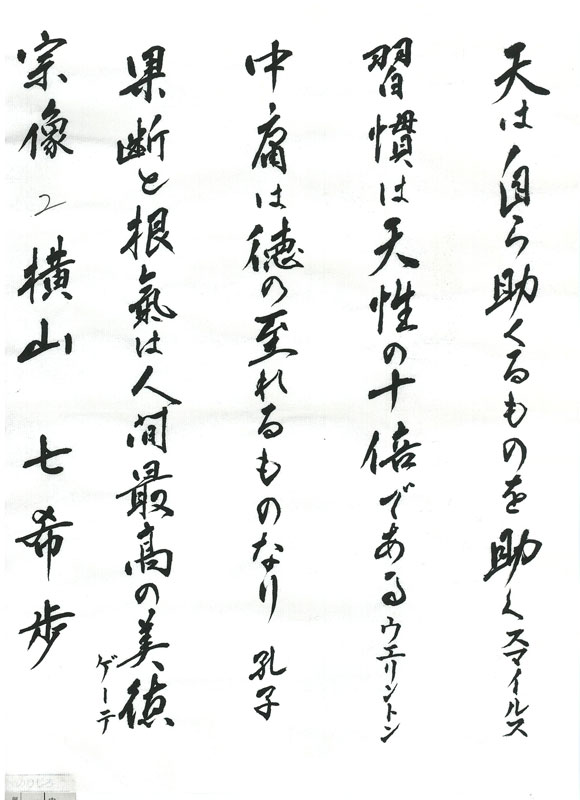 天は自ら助くるものを助く スマイルス
習慣は天性の十倍である ウエリントン
中庸は徳の至れるものなり 孔子
果断と根氣は人間最高の美徳
ゲーテ
宗像 2 横山 七希歩